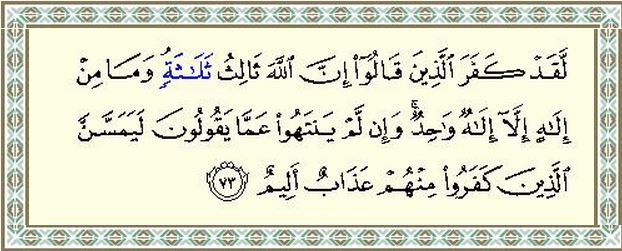 لَّقَدْ كَفَرَ ٱلَّذِينَ قَالُوٓا۟ إِنَّ ٱللَّهَ ثَالِثُ ثَلَـٰثَةٍۘ وَمَا مِنْ
إِلَـٰهٍ إِلَّآ إِلَـٰهٌ وَٰحِدٌۚ وَإِن لَّمْ يَنتَهُوا۟ عَمَّا يَقُولُونَ لَيَمَسَّنَّ
ٱلَّذِينَ كَفَرُوا۟ مِنْهُمْ عَذَابٌ أَلِيمٌ ٧٣